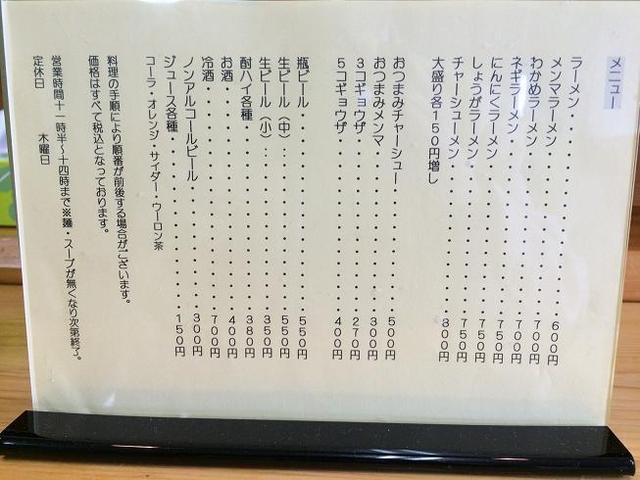 メニュー
ラーメン・・・・・・・・・・・・・・・600円
メンマラーメン・・・・・・・・・・・・700円
わかめラーメン・・・・・・・・・・・・700円
ネギラーメン・・・・・・・・・・・・・750円
にんにくラーメン・・・・・・・・・・・750円
しょうがラーメン・・・・・・・・・・・750円
チャーシューメン・・・・・・・・・・・800円
大盛り各150円増し
おつまみチャーシュー・・・・・・・・・500円
おつまみメンマ・・・・・・・・・・・・300円
3コギョウザ・・・・・・・・・・・・・270円
5コギョウザ・・・・・・・・・・・・・400円
瓶ビール・・・・・・・・・・・・・・・550円
生ビール(中)・・・・・・・・・・・・550円
生ビール(小)・・・・・・・・・・・・350円
酎ハイ各種・・・・・・・・・・・・・・380円
お酒・・・・・・・・・・・・・・・・・400円
冷酒・・・・・・・・・・・・・・・・・700円
ノンアルコールビール・・・・・・・・・300円
ジュース各種・・・・・・・・・・・・・150円
コーラ・オレンジ・サイダー・ウーロン茶
料理の手順により順番が前後する場合がございます。
価格はすべて税込となっております。
営業時間十一時半～十四時まで※麺・スープが無くなり次第終了。
定休日 木曜日